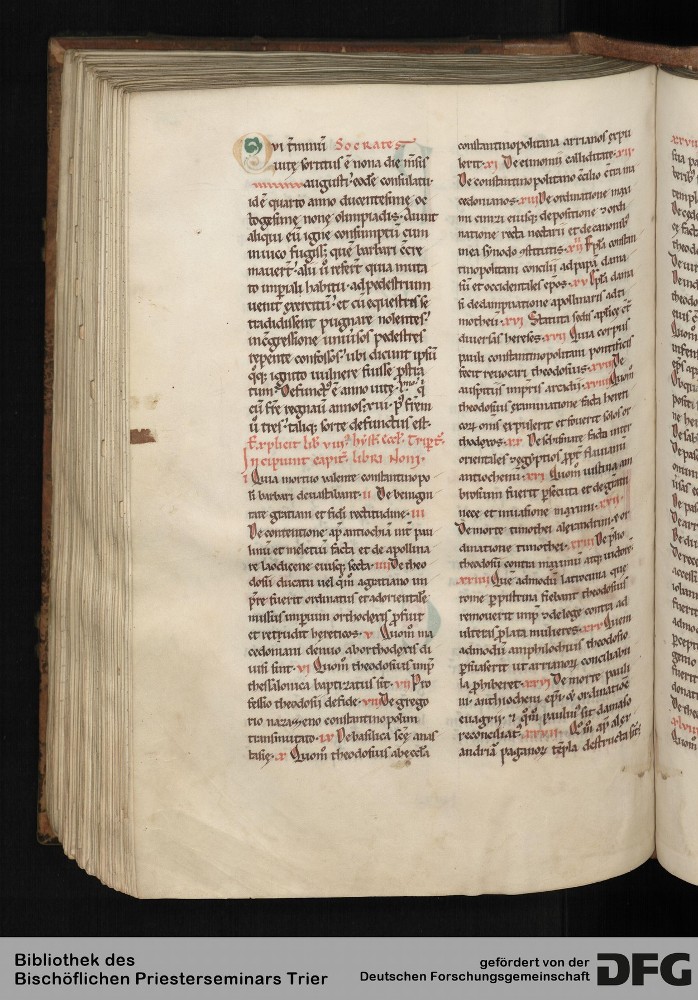 Qui t̄minū Socrates
uitę sortitus ē nona die m̄sis
augusti. eodē consulatu.
id ē quarto anno ducentesimę oc
togesimę nonę olimpiadis. Aiunt
aliqui eū igne consumptū cum
in uico fugiss; quē barbari c̄cre
mauert̄. alii ū refert̄ quia muta
to imperiali habitu. ad pedestrum
uenit exercitū. et cū equestris se
tradidissent pugnare nolentes.
in c̄gressione uniūsos pedestres
repente confossos. ubi dicunt ipsū
q̄q; ignoto uulnere fuisse p̄stra
tum. Defunct᷒ ē anno uitę q̄
cū fr̄e regnauit annos. xvi. p᷒ frēm
ū tres. taliq; sorte defunctus est.
Explicit lib̄ viii᷒ hyst̄. eccl̄. Tripert̄.
Incipiunt capit̄. libri Noni.
i Quia mortuo ualente constantinopo
lī barbari deuastabant. ii De benigni
tate gratiani et fidei rectitudine. iii
De contentione ap̄ antiochiā int̄ pau
linū et meletiū facta et de apollina
re laodicene eiusq; secta. iiii De theo
dosii ducatu uel qm̄ a gratiano im
p̄re fuerit ordinatus et ad orientale
missus imperium orthodoxis p̄fuit
et retrudit hereticos. v Quom̄ ma
cedoniani denuo ab orthodoxis di
uisi sint. vi Quom̄ theodosius imp̄
thessalonica baptizatus sit. vii Pro
fessio theodosii de fide. viii De grego
rio nazazeno constantinopolim
transmutato. ix De basilica scē anas
tasię. x Quom̄ theodosius ab ecclā
constantinopolitana arrianos expu
lerit. xi De eunomii calliditate. xii
De constantinopolitano c̄cilio c̄tra ma
cedonianos. xiii De ordinatione maxi
mi cinici eiusq; depositione & ordi
natione recta nectarii et de canonib᷒
in ea synodo c̄stitutis. xiiii Ep̄la constan
tinopolitani concilii ad papā dama
sū et occidentales ep̄os. xv Ep̄la dama
si de dampnatione apollinaris & ti
mothei. xvi Statuta sedis ap̄licę c̄t̄
diuersas hereses. xvii Quia corpus
pauli constantinopolitani pontificis
fecit reuocari theodosius. xviii De
auspitiis imp̄ris arcadii. xviiii Quom̄
theodosius examinatione facta hereti
cos omis expulerit et fouerit solos or
thodoxos. xx De schismate facto inter
orientales & egyptios ppt̄ flauianū
antiochenū. xxi Quom̄ iustina am
brosium fuerit p̄secuta et de gratiani
nece et inuasione maximi. xxii
De morte timothei alexandrini & or
dinatione timothei. xxiii De p̄lio
theodosii contra maximū atq; uictore.
xxiiii Que admodū latrocinia que
rome p pistrina fiebant theodosius
remouerit imp̄ & de lege contra ad
ulteras plata mulieres. xxv Quem
admodū amphilochius theodosio
p̄suaserit ut arrianoꝝ conciliabu
la phiberet. xxvi De morte pauli
ni. anthiocheni ep̄i & ordinatiōe
euagrii & qm̄ paulin᷒ sit damaso
reconciliat᷒. xxvii Qm̄ ap̄ alex
andriā paganoꝝ tēpla destructa sit.
Bibliothek des
Bischöflichen Priesterseminars Trier
gefördert von der
Deutschen Forschungsgemeinschaft
DFG